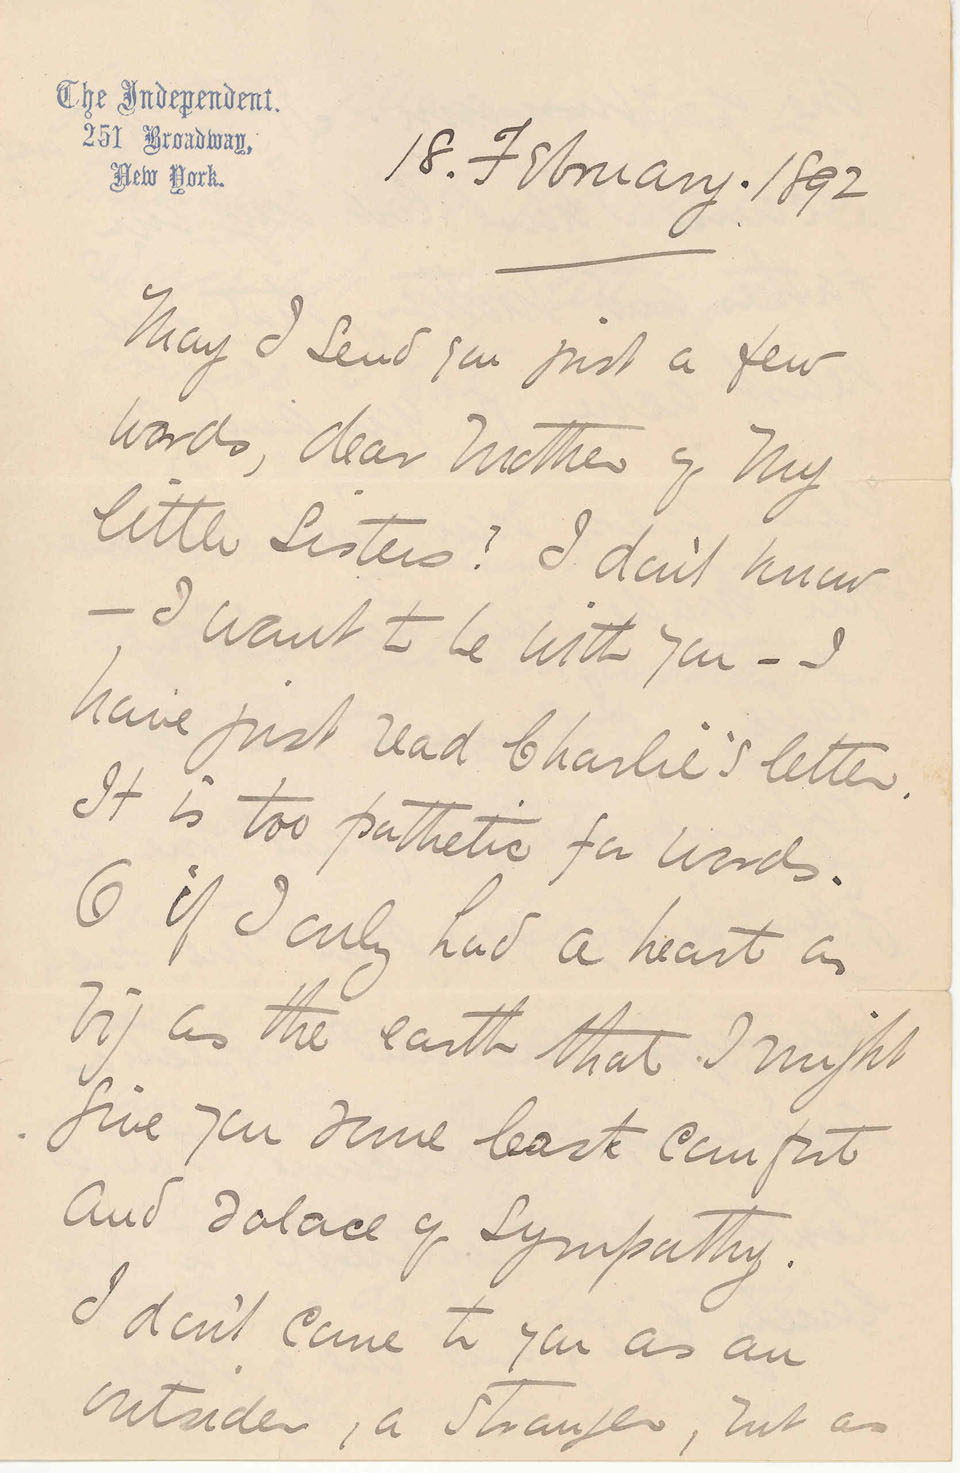 The Independent.
251 Broadway,
New York.
18. February. 1892
May I send you just a few
words, dear Mother of my
little Sisters? I don't know
– I want to be with you – I
have just read Charlie's letter.
It is too pathetic for words.
O if I only had a heart as
big as the earth that I might
give you some least comfort
and solace of sympathy.
I don't come to you as an
outsider, a stranger, but as